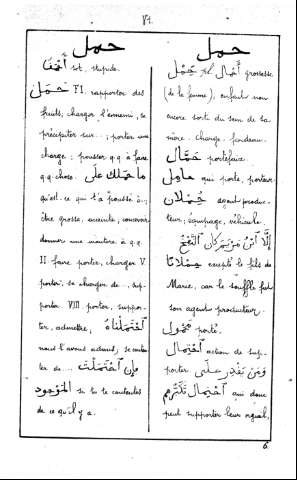 ٧١.
حمل
أحمق sot, stupide.
حَمَلَ F I. rapporter des
fruits, charger l'ennemi, se
précipiter sur..., porter une
charge; pousser q.q. à faire
q.q. chose. مَا حَمَلَكَ عَلَى
qu'est-ce qui t'a poussé à;
être grosse, enceinte, concevoir
donner une monture à q.q.
II faire porter, charger V.
porter, se charger de... sup-
porter VIII porter, suppor-
ter, admettre, اِحْتَمَلْنَاهُ
nous l'avons admis; se conten-
ter de... فَإِنِ احْتَمَلْتَ
المَوْجُود si tu te contentes
de ce qu'il y a.
حمل
حَمْل pl. أَحْمَال grossesse
(de la femme), enfant non
encore sorti du sein de sa
mère. Charge, fardeau.
حَمَّال portefaix.
حَامِل qui porte, porteur.
حُمْلَان agent produc-
teur; équipage, véhicule.
إِلَّا ابْنَ مَرْيَم كَانَ النَّفْخُ
حُمْلَانًا excepté le fils de
Marie, car le souffle fut
son agent producteur.
مَحْمُول porté.
اِحْتِمَال action de sup-
porter وَمَنْ يَقْدِر عَلَى
اِحْتِمَال qui donc
peut supporter leur orgueil.
6